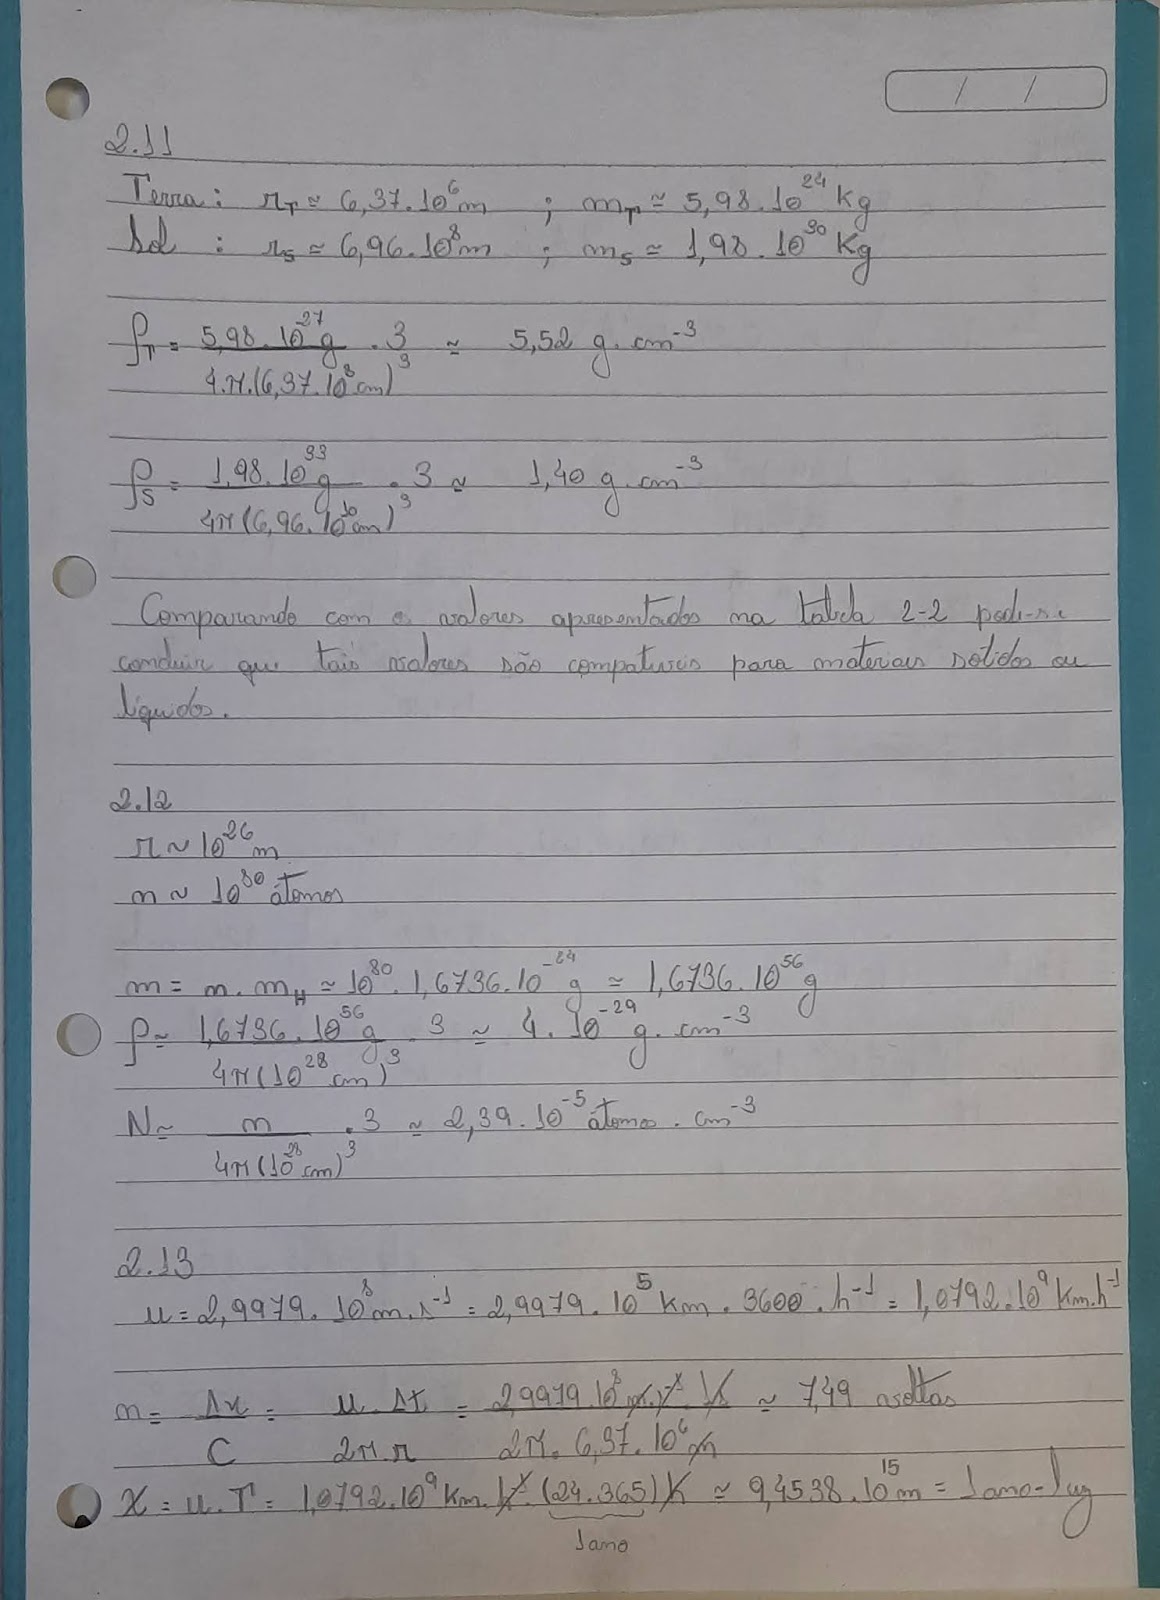 / /
2.11
Terra: r_T ≃ 6,37.10^6 m ; m_T ≃ 5,98.10^24 Kg
Sol : r_S ≃ 6,96.10^8 m ; m_S ≃ 1,98.10^30 Kg
ρ_T = 5,98.10^27 g / 4.π.(6,37.10^8 cm)^3 . 3 ≃ 5,52 g.cm^-3
ρ_S = 1,98.10^33 g / 4π(6,96.10^10 cm)^3 . 3 ≃ 1,40 g.cm^-3
Comparando com os valores apresentados na tabela 2-2 pode-se
concluir que tais valores são compatíveis para materiais sólidos ou
líquidos.
2.12
r ~ 10^26 m
n ~ 10^80 átomos
m = n.m_H ≃ 10^80 . 1,6736.10^-24 g ≃ 1,6736.10^56 g
ρ ≃ 1,6736.10^56 g / 4π(10^28 cm)^3 . 3 ≃ 4.10^-29 g.cm^-3
N ≃ n / 4π(10^28 cm)^3 . 3 ≃ 2,39.10^-5 átomos.cm^-3
2.13
u = 2,9979.10^8 m.s^-1 = 2,9979.10^5 Km.3600.h^-1 = 1,0792.10^9 Km.h^-1
n = Δx / C = u.Δt / 2π.r = 2,9979.10^8 m.s^-1.1s / 2π.6,37.10^6 m ≃ 7,49 voltas
X = u.T = 1,0792.10^9 Km.h^-1.(24.365)h ≃ 9,4538.10^15 m = 1 ano-luz
1 ano